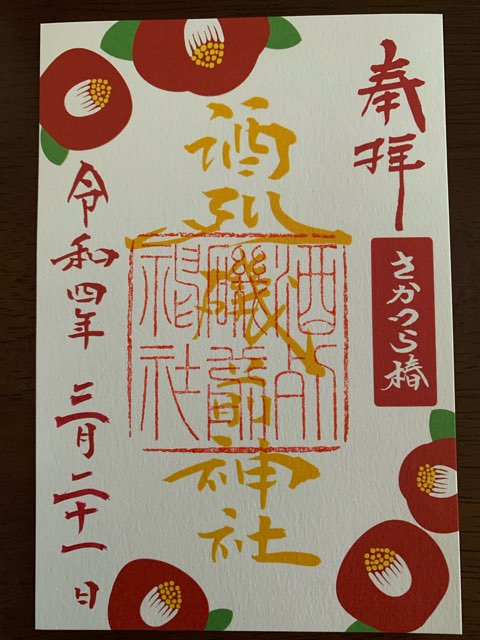 奉拝
さかつら椿
酒列磯前神社
酒列
磯前
神社
令和四年 三月二十一日